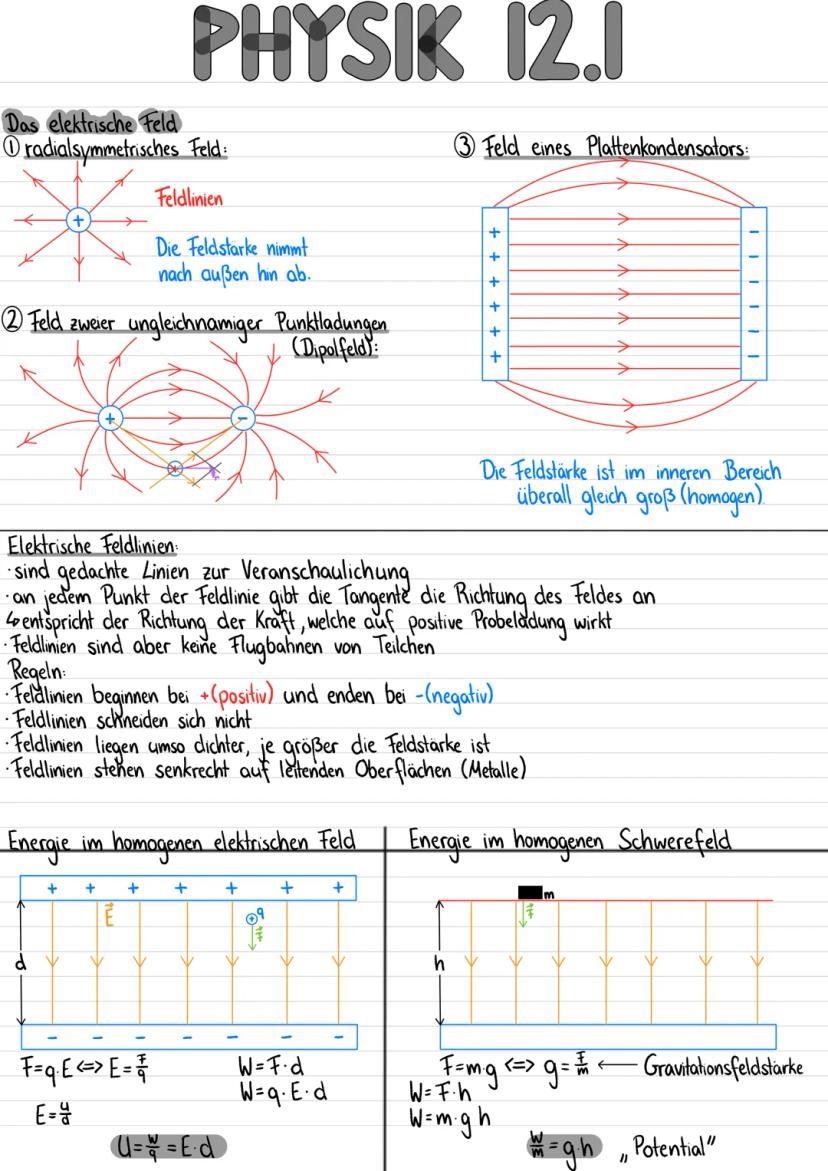 PHYSIK 12.1
Das elektrische Feld
① radialsymmetrisches Feld:
+
Feldlinien
Die Feldstärke nimmt
nach außen hin ab.
② Feld zweier ungleichnamiger Punktladungen
(Dipolfeld):
+ -
③ Feld eines Plattenkondensators:
+ -
+ -
+ -
+ -
+ -
+ -
Die Feldstärke ist im inneren Bereich
überall gleich groß (homogen).
Elektrische Feldlinien:
· sind gedachte Linien zur Veranschaulichung
· an jedem Punkt der Feldlinie gibt die Tangente die Richtung des Feldes an
↳ entspricht der Richtung der Kraft, welche auf positive Probeladung wirkt
· Feldlinien sind aber keine Flugbahnen von Teilchen
Regeln:
· Feldlinien beginnen bei +(positiv) und enden bei -(negativ)
· Feldlinien schneiden sich nicht
· Feldlinien liegen umso dichter, je größer die Feldstärke ist
· Feldlinien stehen senkrecht auf leitenden Oberflächen (Metalle)
Energie im homogenen elektrischen Feld
+ + + + + + +
E⃗
+ q
F⃗
d
- - - - - - -
F=q·E <=> E=F/q
W=F·d
W=q·E·d
E=U/d
U=W/q=E·d
Energie im homogenen Schwerefeld
m
F⃗
h
F=m·g <=> g=F/m ← Gravitationsfeldstärke
W=F·h
W=m·g·h
W/m=g·h „Potential“